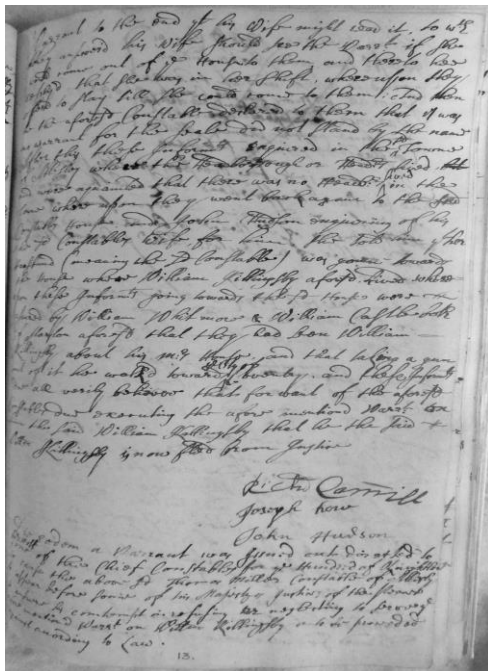 to the end yt his Wife might read it, to wch
they answered his Wife should see the Warrt if she
would come out of ye House to them and there to her
replyed that she was in her Shift, whereupon they
to stay till she could come to them: And then
the aforesd Constable declared to them that it was
no warrant for the Seale did not stand by the name
After this these Informts enquired in the Towne
of whether the Headborough or
and were aquainted that there was no in the
Towne whereupon they went back again to the sd
Constables house and John Hudson enquireing of his
sd Constables Wife for him: She told him that her
husband (meaning the sd Constable) was gone towards
the house where William Killingley aforesd lived where
upon these Informts going towards the sd House were
by William Whitmore & William Castle
of aforesd that they had seen William
Killingley about his and that takeing a gun
out of it he walked towards and these Informts
are all verily believe that for want of the aforesd
Constables due executing the afore mentiond Warrt on
the said William Killingley that he the said
Willm Killingley is now fled from Justice
Richd Camill
Joseph Low
John Hudson
a Warrant was Issued out directed to
of the Chief Constables for ye Hundred of
to cause the above sd Thomas Constable of
to appear before some of his Majestys Justices of the Peace
to answer A contempt in refusing or neglecting to
mentioned Warrt on Willm Killingley & to be proceeded
against according to Law.
13.